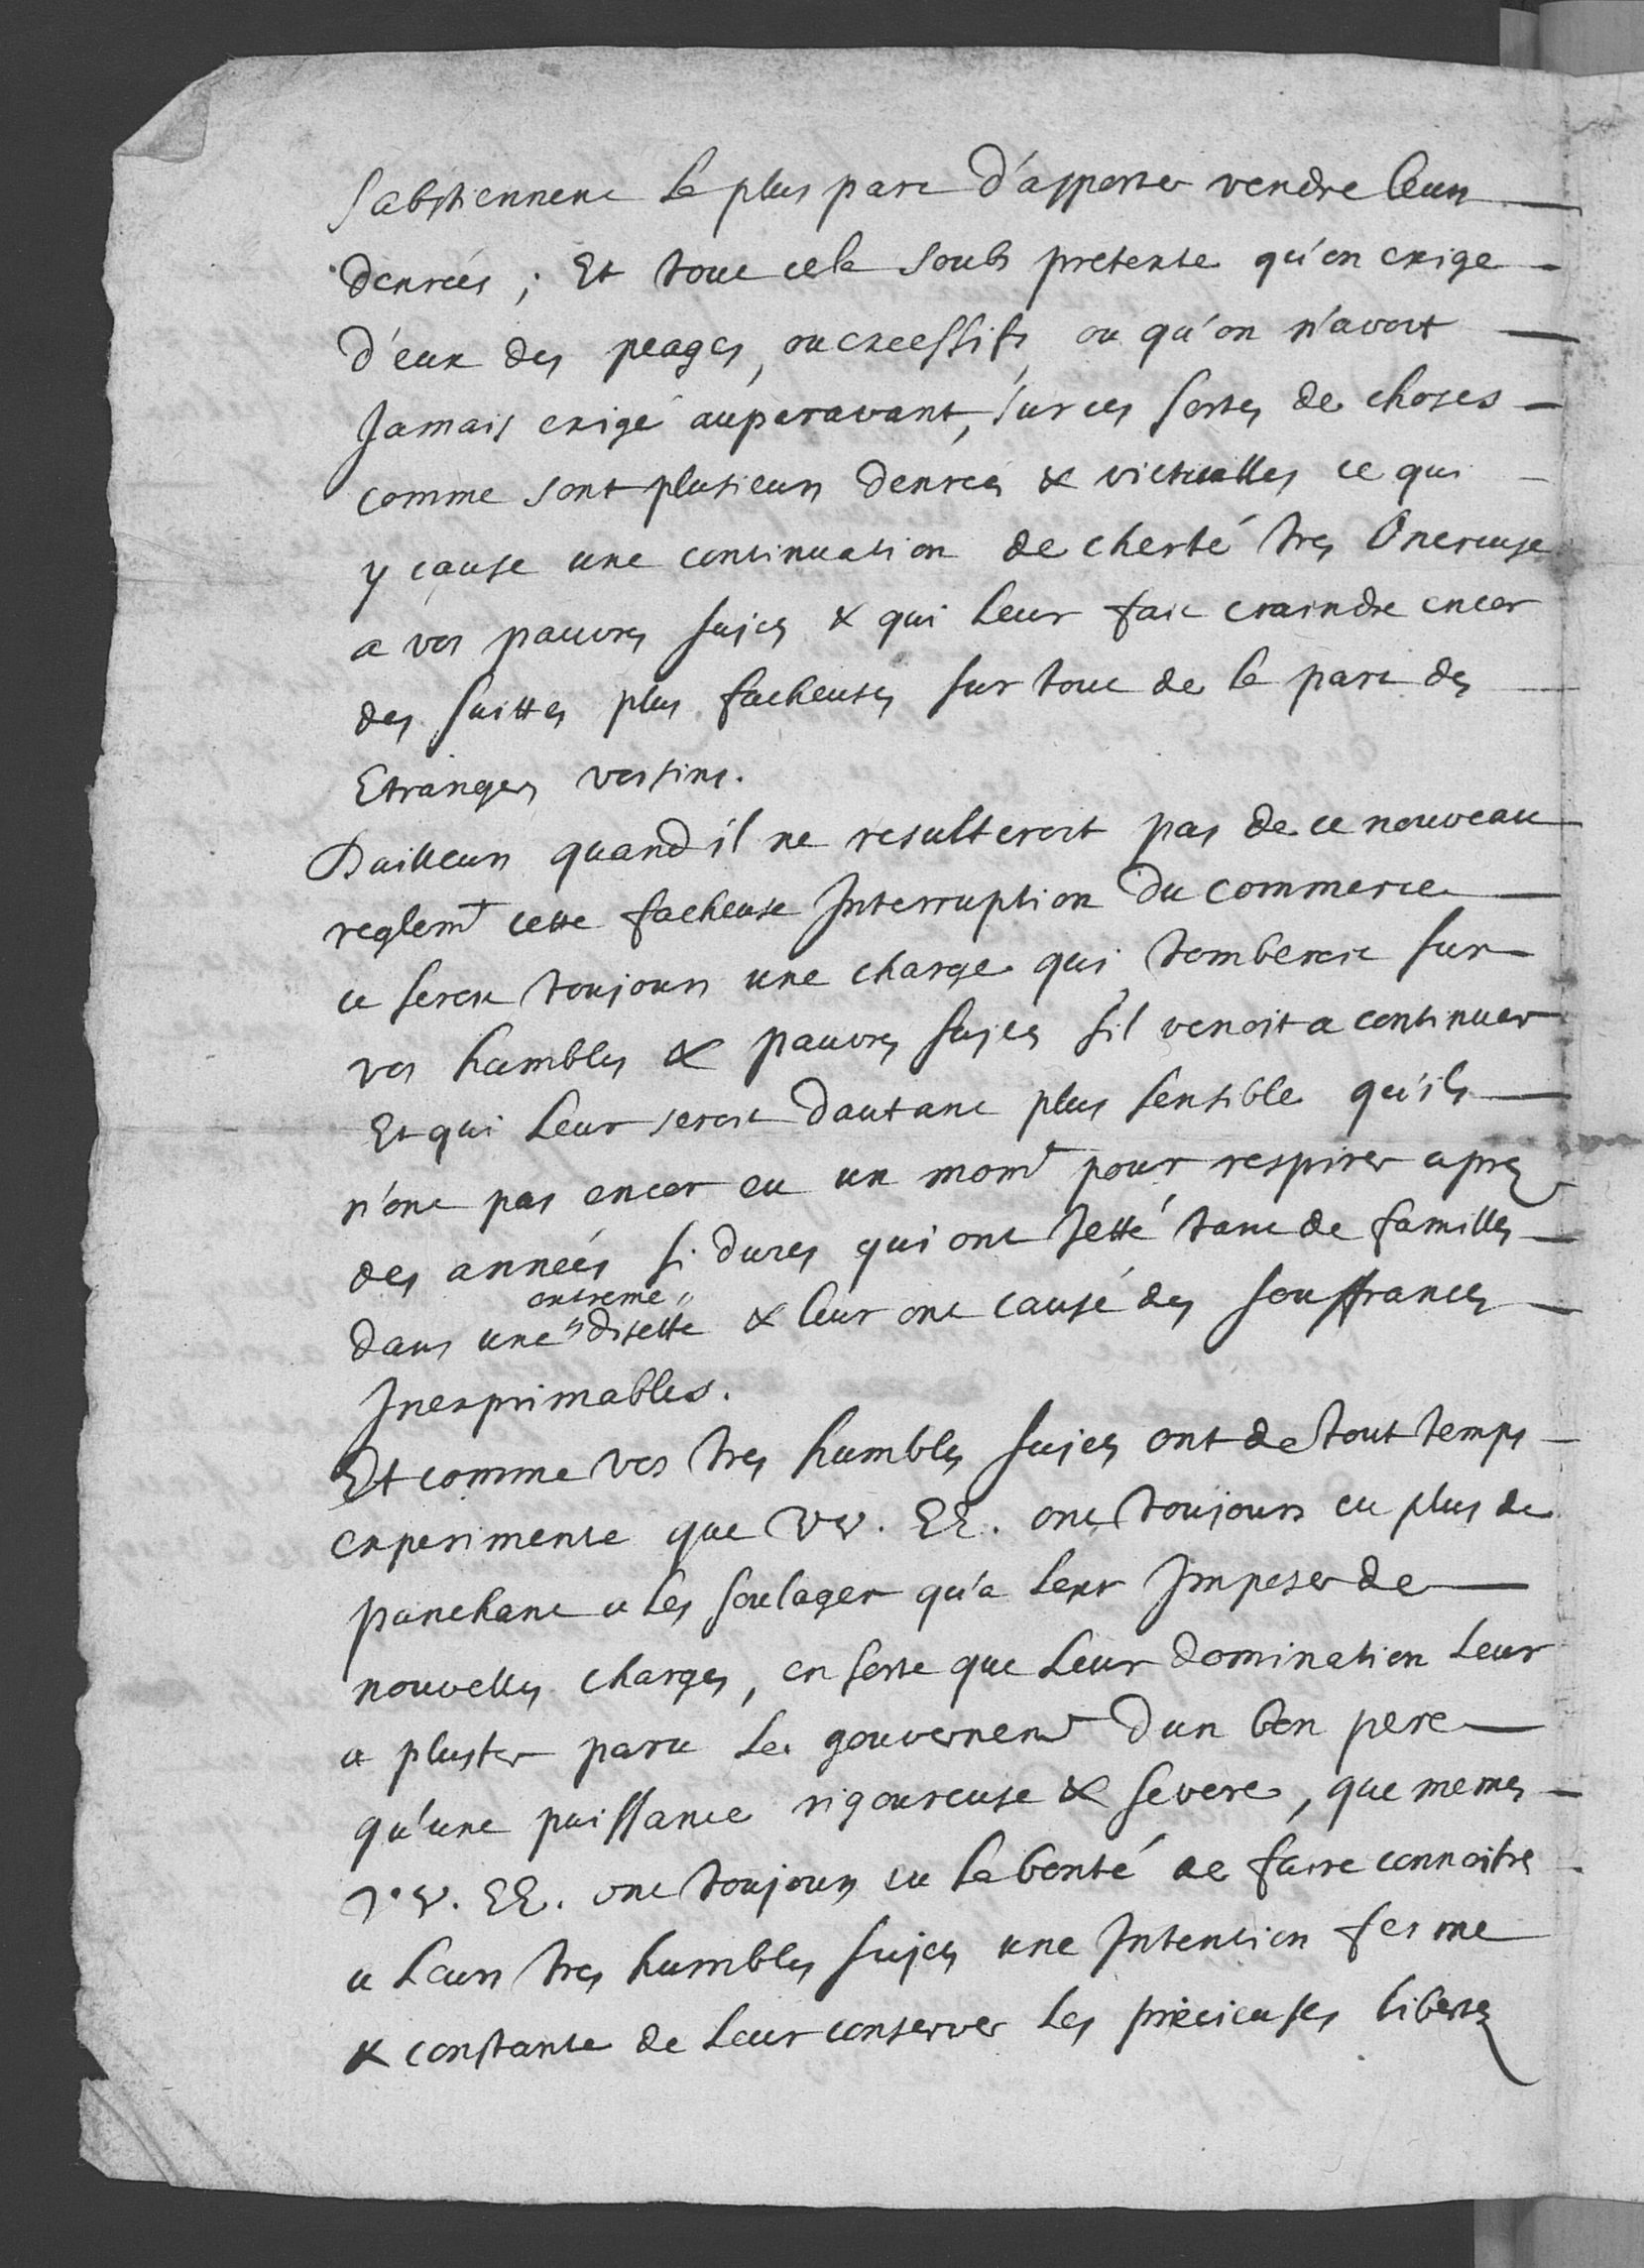 s'abstiennent la plus part d'apporter vendre leurs
denrées ; Et tout cela soubs pretexte qu'on exige
d'eux des peages, ou excessifs, ou qu'on n'avoit
Jamais exigé auparavant, sur ces sortes de choses
comme sont plusieurs denrées & victuailles ce qui
y cause une continuation de cherté tres Onereuse
a vos pauvres sujets & qui leur fait craindre encor
des suittes plus facheuses sur tout de la part des
Etrangers voisins.
Dailleurs quand il ne resulteroit pas de ce nouveau
reglemt cette facheuse Interruption du commerce
ce seroit toujours une charge qui tomberoit sur
vos humbles & pauvres sujets s'il venoit a continuer
Et qui leur seroit dautant plus sensible qu'ils
n'ont pas encor eu un momt pour respirer aprez
des années si dures qui ont jetté tant de familles
dans une extreme disette & leur ont causé des souffrances
Inexprimables.
Et comme vos tres humbles sujets ont de tout temps
experimenté que VV. EE. ont toujours eu plus de
panchant a les soulager qu'a leur Imposer de
nouvelles charges, en sorte que leur domination leur
a plustot paru le gouvernemt d'un bon pere
qu'une puissance rigoureuse & severe, que memes
VV. EE. ont toujours eu la bonté de faire connoitre
a leurs tres humbles sujets une Intention ferme
& constante de leur conserver les precieuses libertez